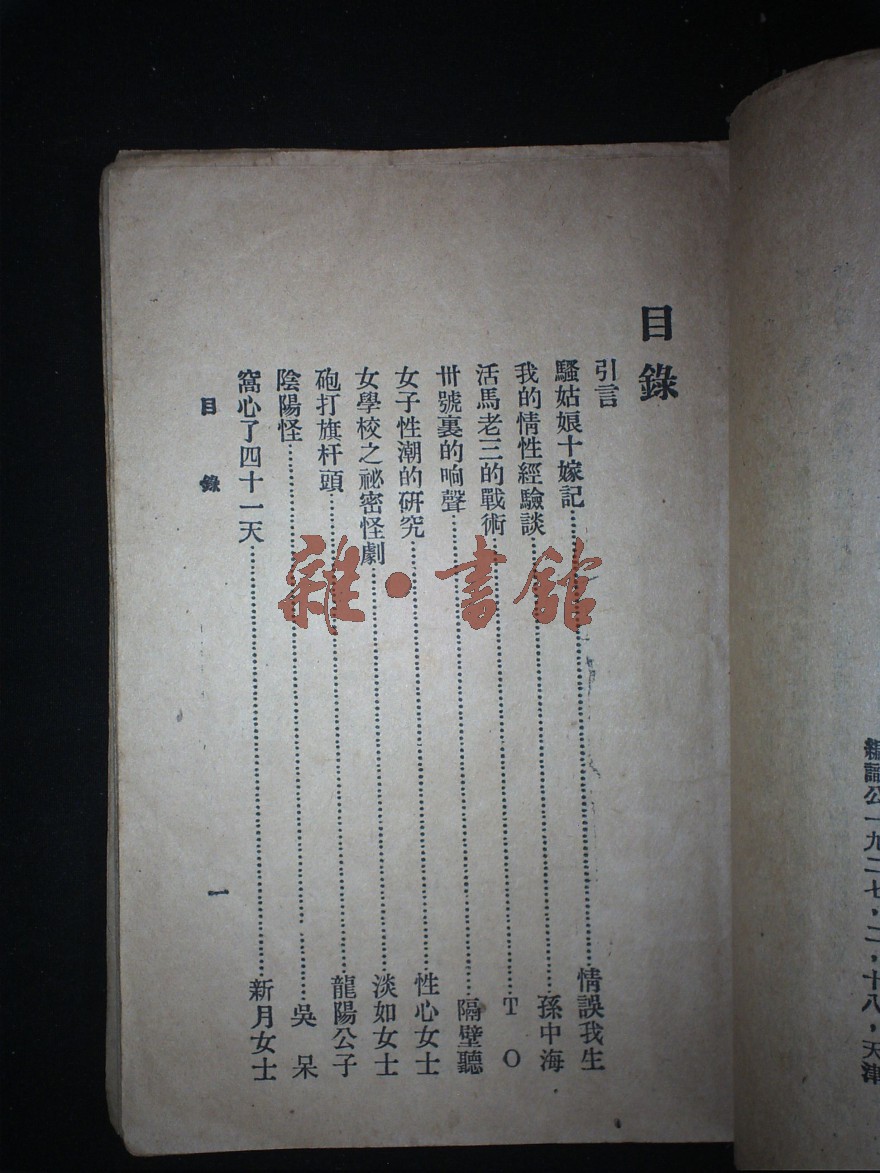 編譯公一九二七，二，十八，天津
目錄
引言
騷姑娘十嫁記……情誤我生
我的情性經驗談……孫中海
活馬老三的戰術……T O
卅號裏的响聲……隔壁聽
女子性潮的研究……性心女士
女學校之祕密怪劇……淡如女士
砲打旗杆頭……龍陽公子
陰陽怪……吳呆
窩心了四十一天……新月女士
目錄 一
雜·書館